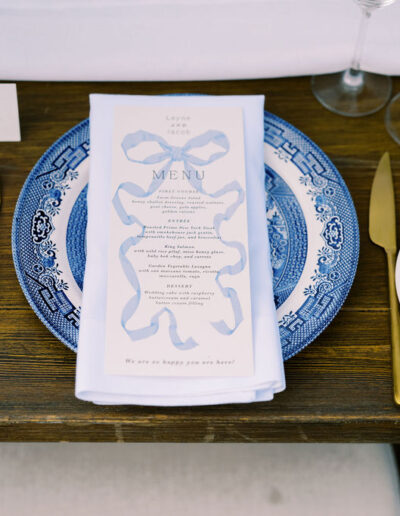 and
Jacob
MENU
FIRST COURSE
honey shallot dressing, toasted walnuts,
goat cheese, gala apples,
golden raisins
ENTRÉE
Roasted Prime New York Steak
with smokehouse jack gratin,
beef jus, and broccolini
King Salmon
with wild rice pilaf, miso honey glaze,
baby bok choy, and carrots
Garden Vegetable Lasagna
with san marzano tomato, ricotta,
mozzarella, sugo
DESSERT
Wedding cake with raspberry
buttercream and caramel
butter cream
We are so happy you are here!